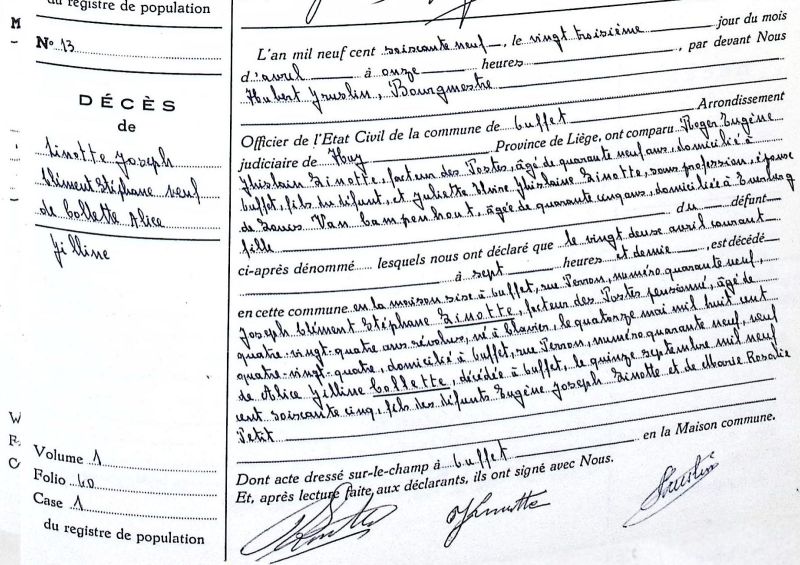 du registre de population
Nº 13
DÉCÈS
de
Linotte Joseph
Clément Stéphane veuf
de Collette Alice
Filline
Volume 1
Folio 60
Case 1
du registre de population
L'an mil neuf cent soixante neuf, le vingt troisième jour du mois
d'avril à onze heures, par devant Nous
Hubert, Bourgmestre
Officier de l'Etat Civil de la commune de Ouffet Arrondissement
judiciaire de Huy Province de Liège, ont comparu Roger Eugène
Ghislain Linotte, facteur des Postes, âgé de quarante neuf ans, domicilié à
Ouffet, fils du défunt, et Juliette Ghislaine Linotte, sans profession, épouse
de Van Campenhout, âgée de quarante cinq ans, domiciliée à
fille du défunt
ci-après dénommé lesquels nous ont déclaré que le vingt deux avril courant
à sept heures et demie, est décédé
en cette commune en la maison sise à Ouffet, rue Perron, numéro quarante neuf,
Joseph Clément Stéphane Linotte, facteur des Postes pensionné, âgé de
quatre-vingt-quatre ans révolus, né à Clavier, le quatorze mai mil huit cent
quatre-vingt-quatre, domicilié à Ouffet, rue Perron, numéro quarante neuf, veuf
de Alice Filline Collette, décédée à Ouffet, le quinze septembre mil neuf
cent soixante cinq, fils des défunts Eugène Joseph Linotte et de Marie Rosalie
Petit
Dont acte dressé sur-le-champ à Ouffet en la Maison commune.
Et, après lecture faite aux déclarants, ils ont signé avec Nous.